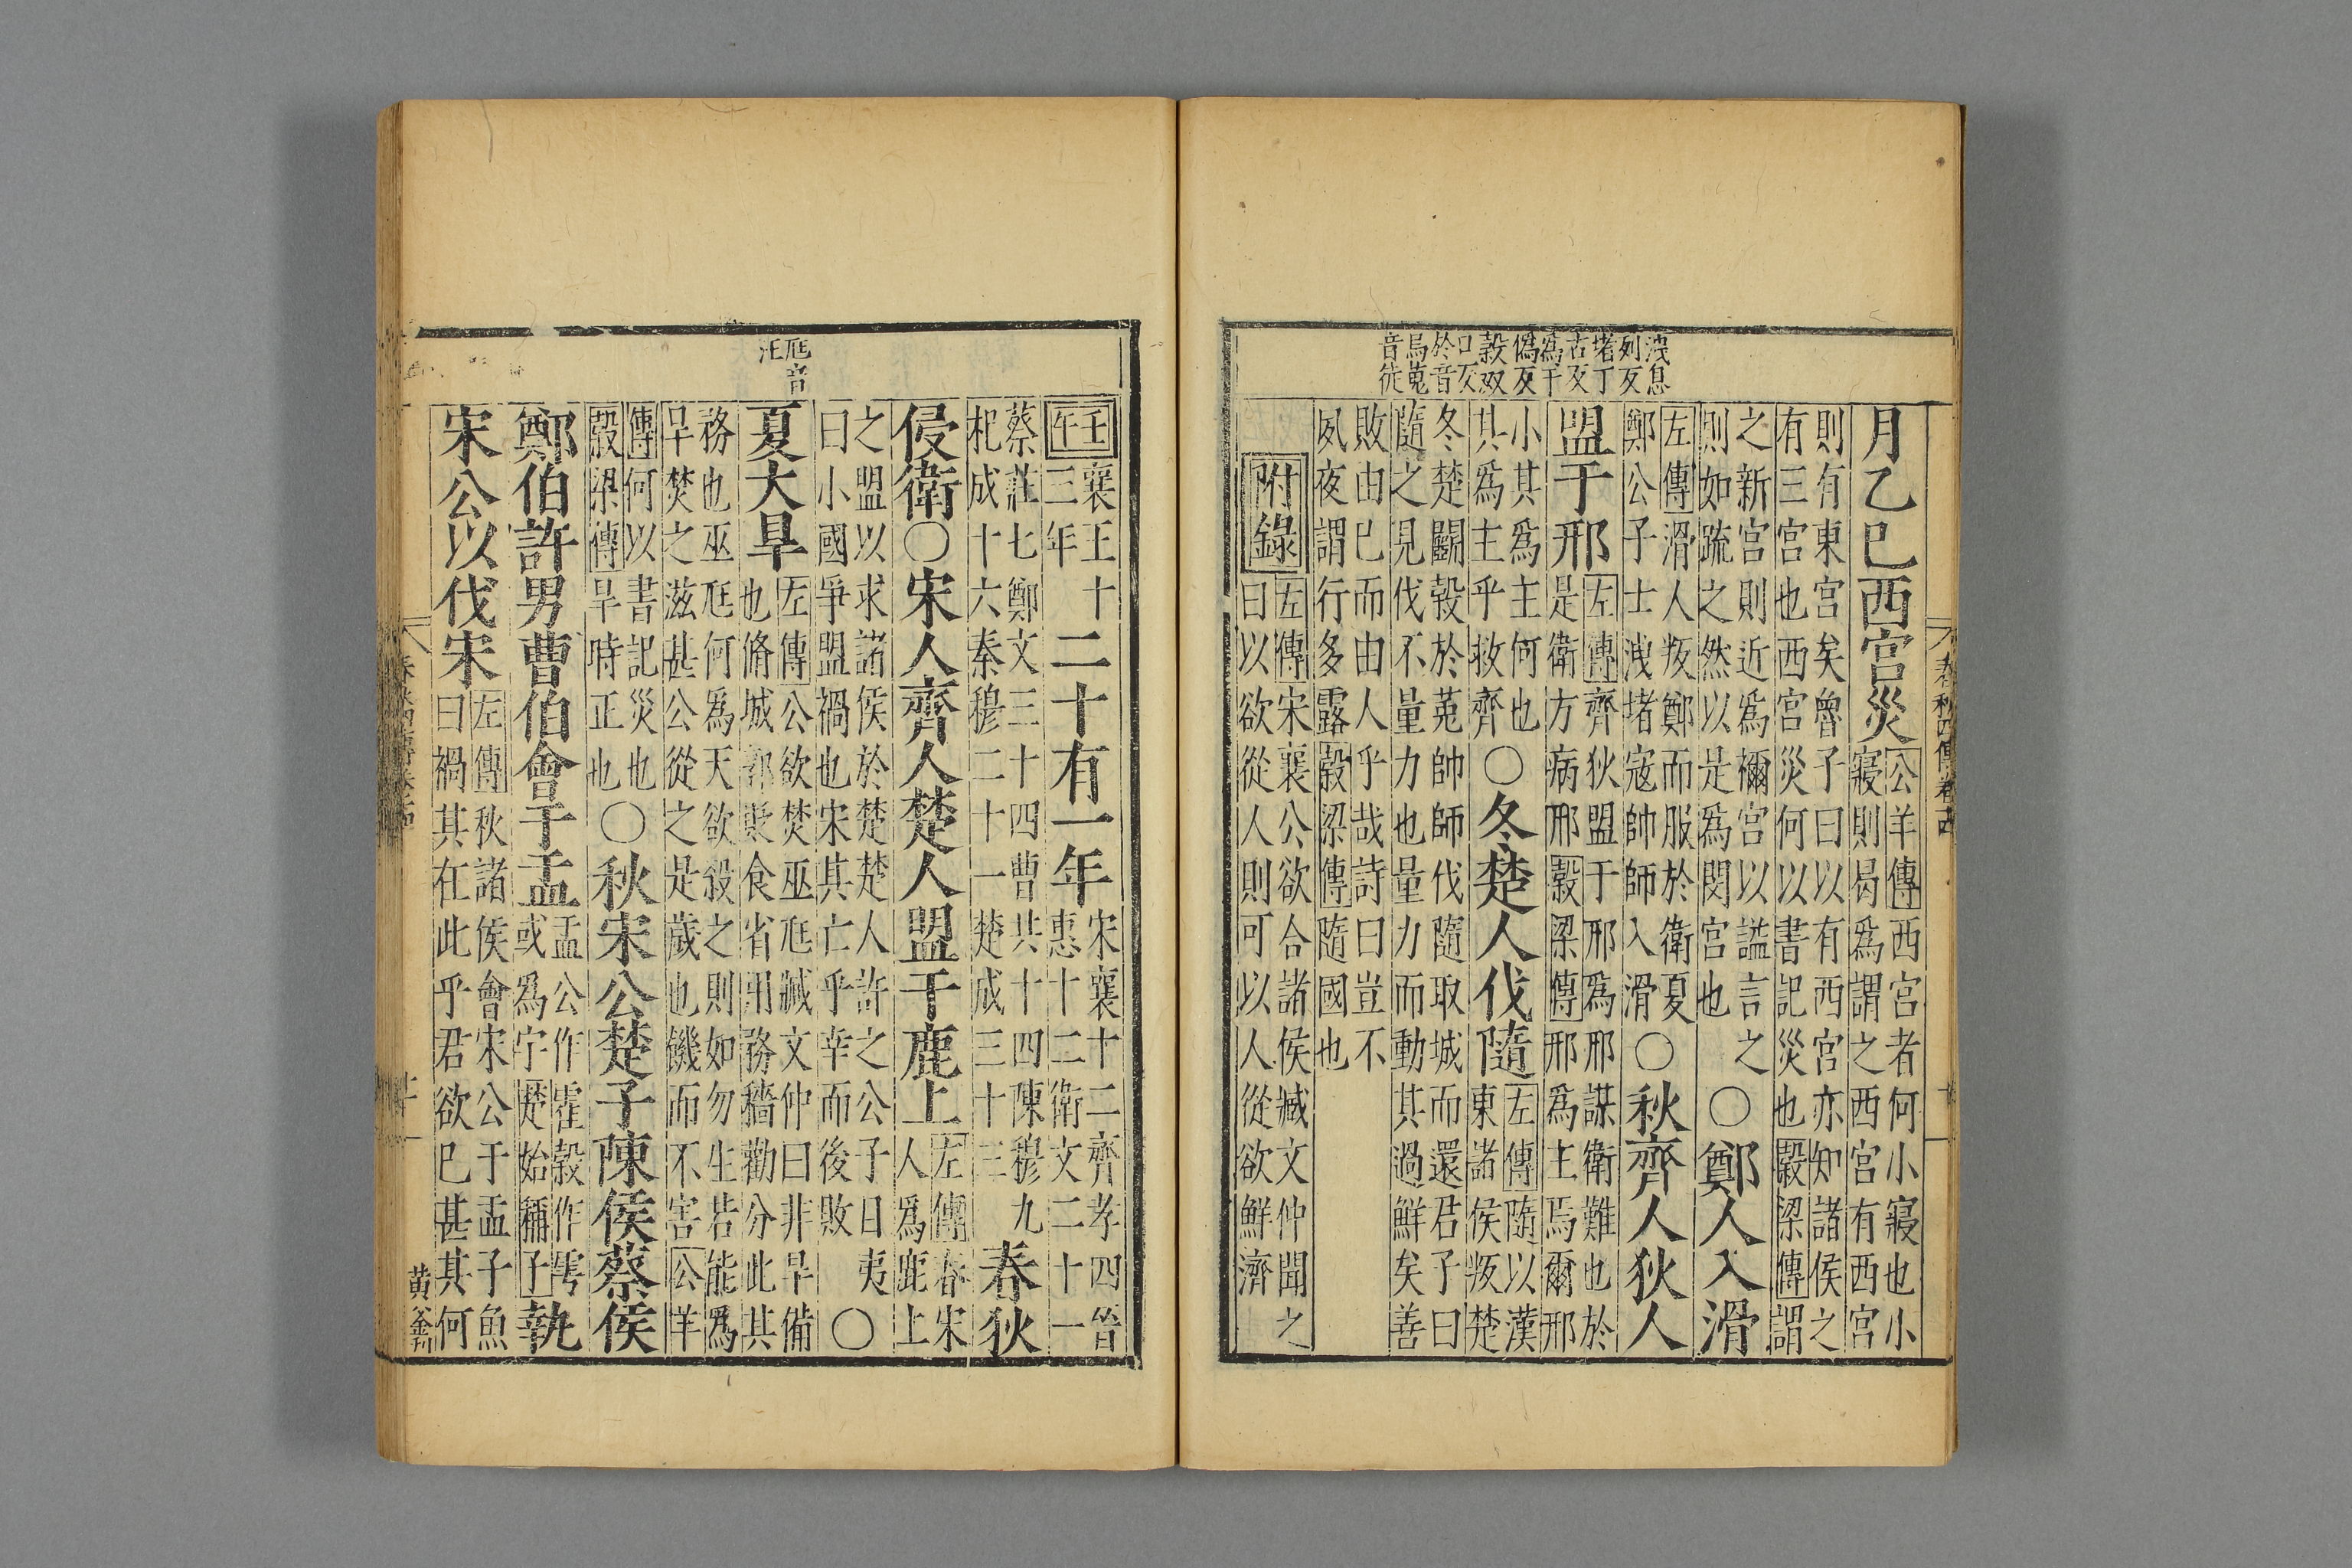 洩息
列反
堵丁
古反
爲于
僞反
穀奴
口反
於音
烏菟
音徒
月乙巳西宮災
公羊傳西宮者何小寢也小
寢則曷爲謂之西宮有西宮
則有東宮矣魯子曰以有西宮亦知諸侯之
有三宮也西宮災何以書記災也穀梁傳謂
之新宮則近爲禰宮以謚言之
則如疏之然以是爲閔宮也
○鄭人入滑
左傳滑人叛鄭而服於衛夏
鄭公子士洩堵寇帥師入滑
○秋齊人狄人
盟于邢
左傳齊狄盟于邢爲邢謀衛難也於
是衛方病邢穀梁傳邢爲主焉爾邢
小其爲主何也
其爲主乎救齊
○冬楚人伐隨
左傳隨以漢
東諸侯叛楚
冬楚鬬穀於菟帥師伐隨取城而還君子曰
隨之見伐不量力也量力而動其過鮮矣善
敗由已而由人乎哉詩曰豈不
夙夜謂行多露穀梁傳隨國也
附錄
左傳宋襄公欲合諸侯臧文仲聞之
曰以欲從人則可以人從欲鮮濟
春秋四傳卷十四
尫音
汪
壬午
襄王十
三年
二十有一年
宋襄十二齊孝四晉
惠十二衛文二十一
蔡莊七鄭文三十四曹共十四陳穆九
杞成十六秦穆二十一楚成三十三
春狄
侵衛○宋人齊人楚人盟于鹿上
左傳春宋
人爲鹿上
之盟以求諸侯於楚楚人許之公子目夷
曰小國爭盟禍也宋其亡乎幸而後敗
○
夏大旱
左傳公欲焚巫尫臧文仲曰非旱備
也脩城郭貶食省用務穡勸分此其
務也巫尫何爲天欲殺之則如勿生若能爲
旱焚之滋甚公從之是歲也饑而不害公羊
傳何以書記災也
穀梁傳旱時正也
○秋宋公楚子陳侯蔡侯
鄭伯許男曹伯會于盂
盂公作霍穀作雩
或爲宇楚始稱子
執
宋公以伐宋
左傳秋諸侯會宋公于盂子魚
曰禍其在此乎君欲已甚其何
黄釜刊